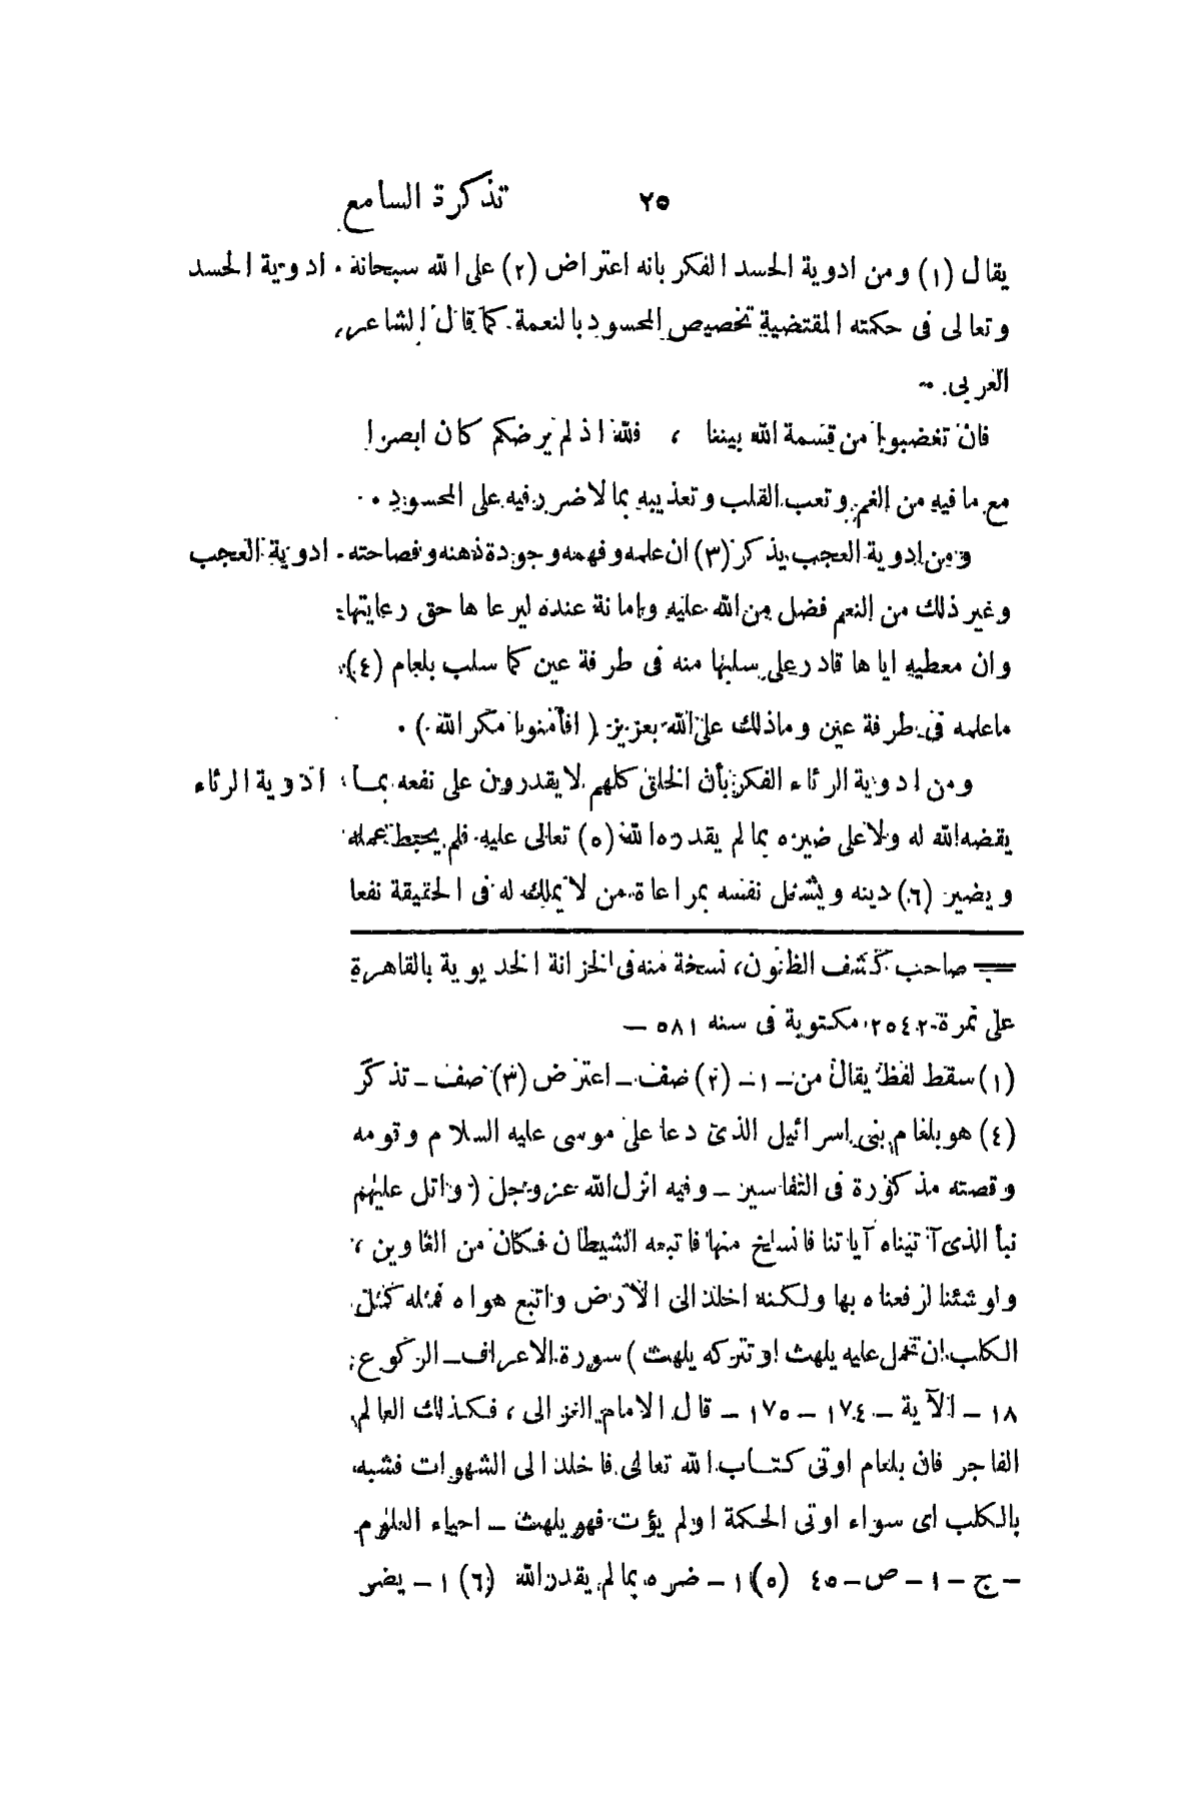 تذكرة السامع ٢٥
يقال (١) ومن ادوية الحسد الفكر بانه اعتراض (٢) على الله سبحانه . ادوية الحسد
وتعالى فى حكمته المقتضية تخصيص المحسود بالنعمة . كما قال الشاعر
العربى .
فان تغضبوا من قسمة الله بيننا ، فلله اذ لم يرضكم كان ابصرا
مع ما فيه من الغم وتعب القلب وتعذيبه بما لا ضرر فيه على المحسود .
ومن ادوية العجب يذكر (٣) ان علمه وفهمه وجودة ذهنه وفصاحته . ادوية العجب
وغير ذلك من النعم فضل من الله عليه وامانة عنده ليرعاها حق رعايتها
وان معطيه اياها قادر على سلبها منه فى طرفة عين كما سلب بلعام (٤)
ما علمه فى طرفة عين وما ذلك على الله بعزيز (افأمنوا مكر الله) .
ومن ادوية الرئاء الفكر بأن الخلق كلهم لا يقدرون على نفعه بما ادوية الرئاء
يقضه الله له ولا على ضيره بما لم يقدره الله (٥) تعالى عليه فلم يحبط عمله
ويضير (٦) دينه ويشغل نفسه بمراعاة من لا يملك له فى الحقيقة نفعا
= صاحب كشف الظنون، نسخة منه فى الخزانة الخديوية بالقاهرة
على نمرة ٢٥٤٢ مكتوبة فى سنه ٥٨١ —
(١) سقط لفظ يقال من - ١ - (٢) صف - اعترض (٣) صف - تذكر
(٤) هو بلعام بنى اسرائيل الذى دعا على موسى عليه السلام وقومه
وقصته مذكورة فى التفاسير - وفيه انزل الله عز وجل (واتل عليهم
نبأ الذى آتيناه آياتنا فانسلخ منها فاتبعه الشيطان فكان من الغاوين ،
ولو شئنا لرفعناه بها ولكنه اخلد الى الارض واتبع هواه فمثله كمثل
الكلب ان تحمل عليه يلهث او تتركه يلهث) سورة الاعراف - الركوع
١٨ - الآية - ١٧٤ - ١٧٥ - قال الامام الغزالى ، فكذلك العالم
الفاجر فان بلعام اوتى كتاب الله تعالى فاخلد الى الشهوات فشبه
بالكلب اى سواء اوتى الحكمة او لم يؤت فهو يلهث - احياء العلوم
- ج - ١ - ص - ٤٥ (٥) ١ - ضره بما لم يقدر الله (٦) ١ - يضر